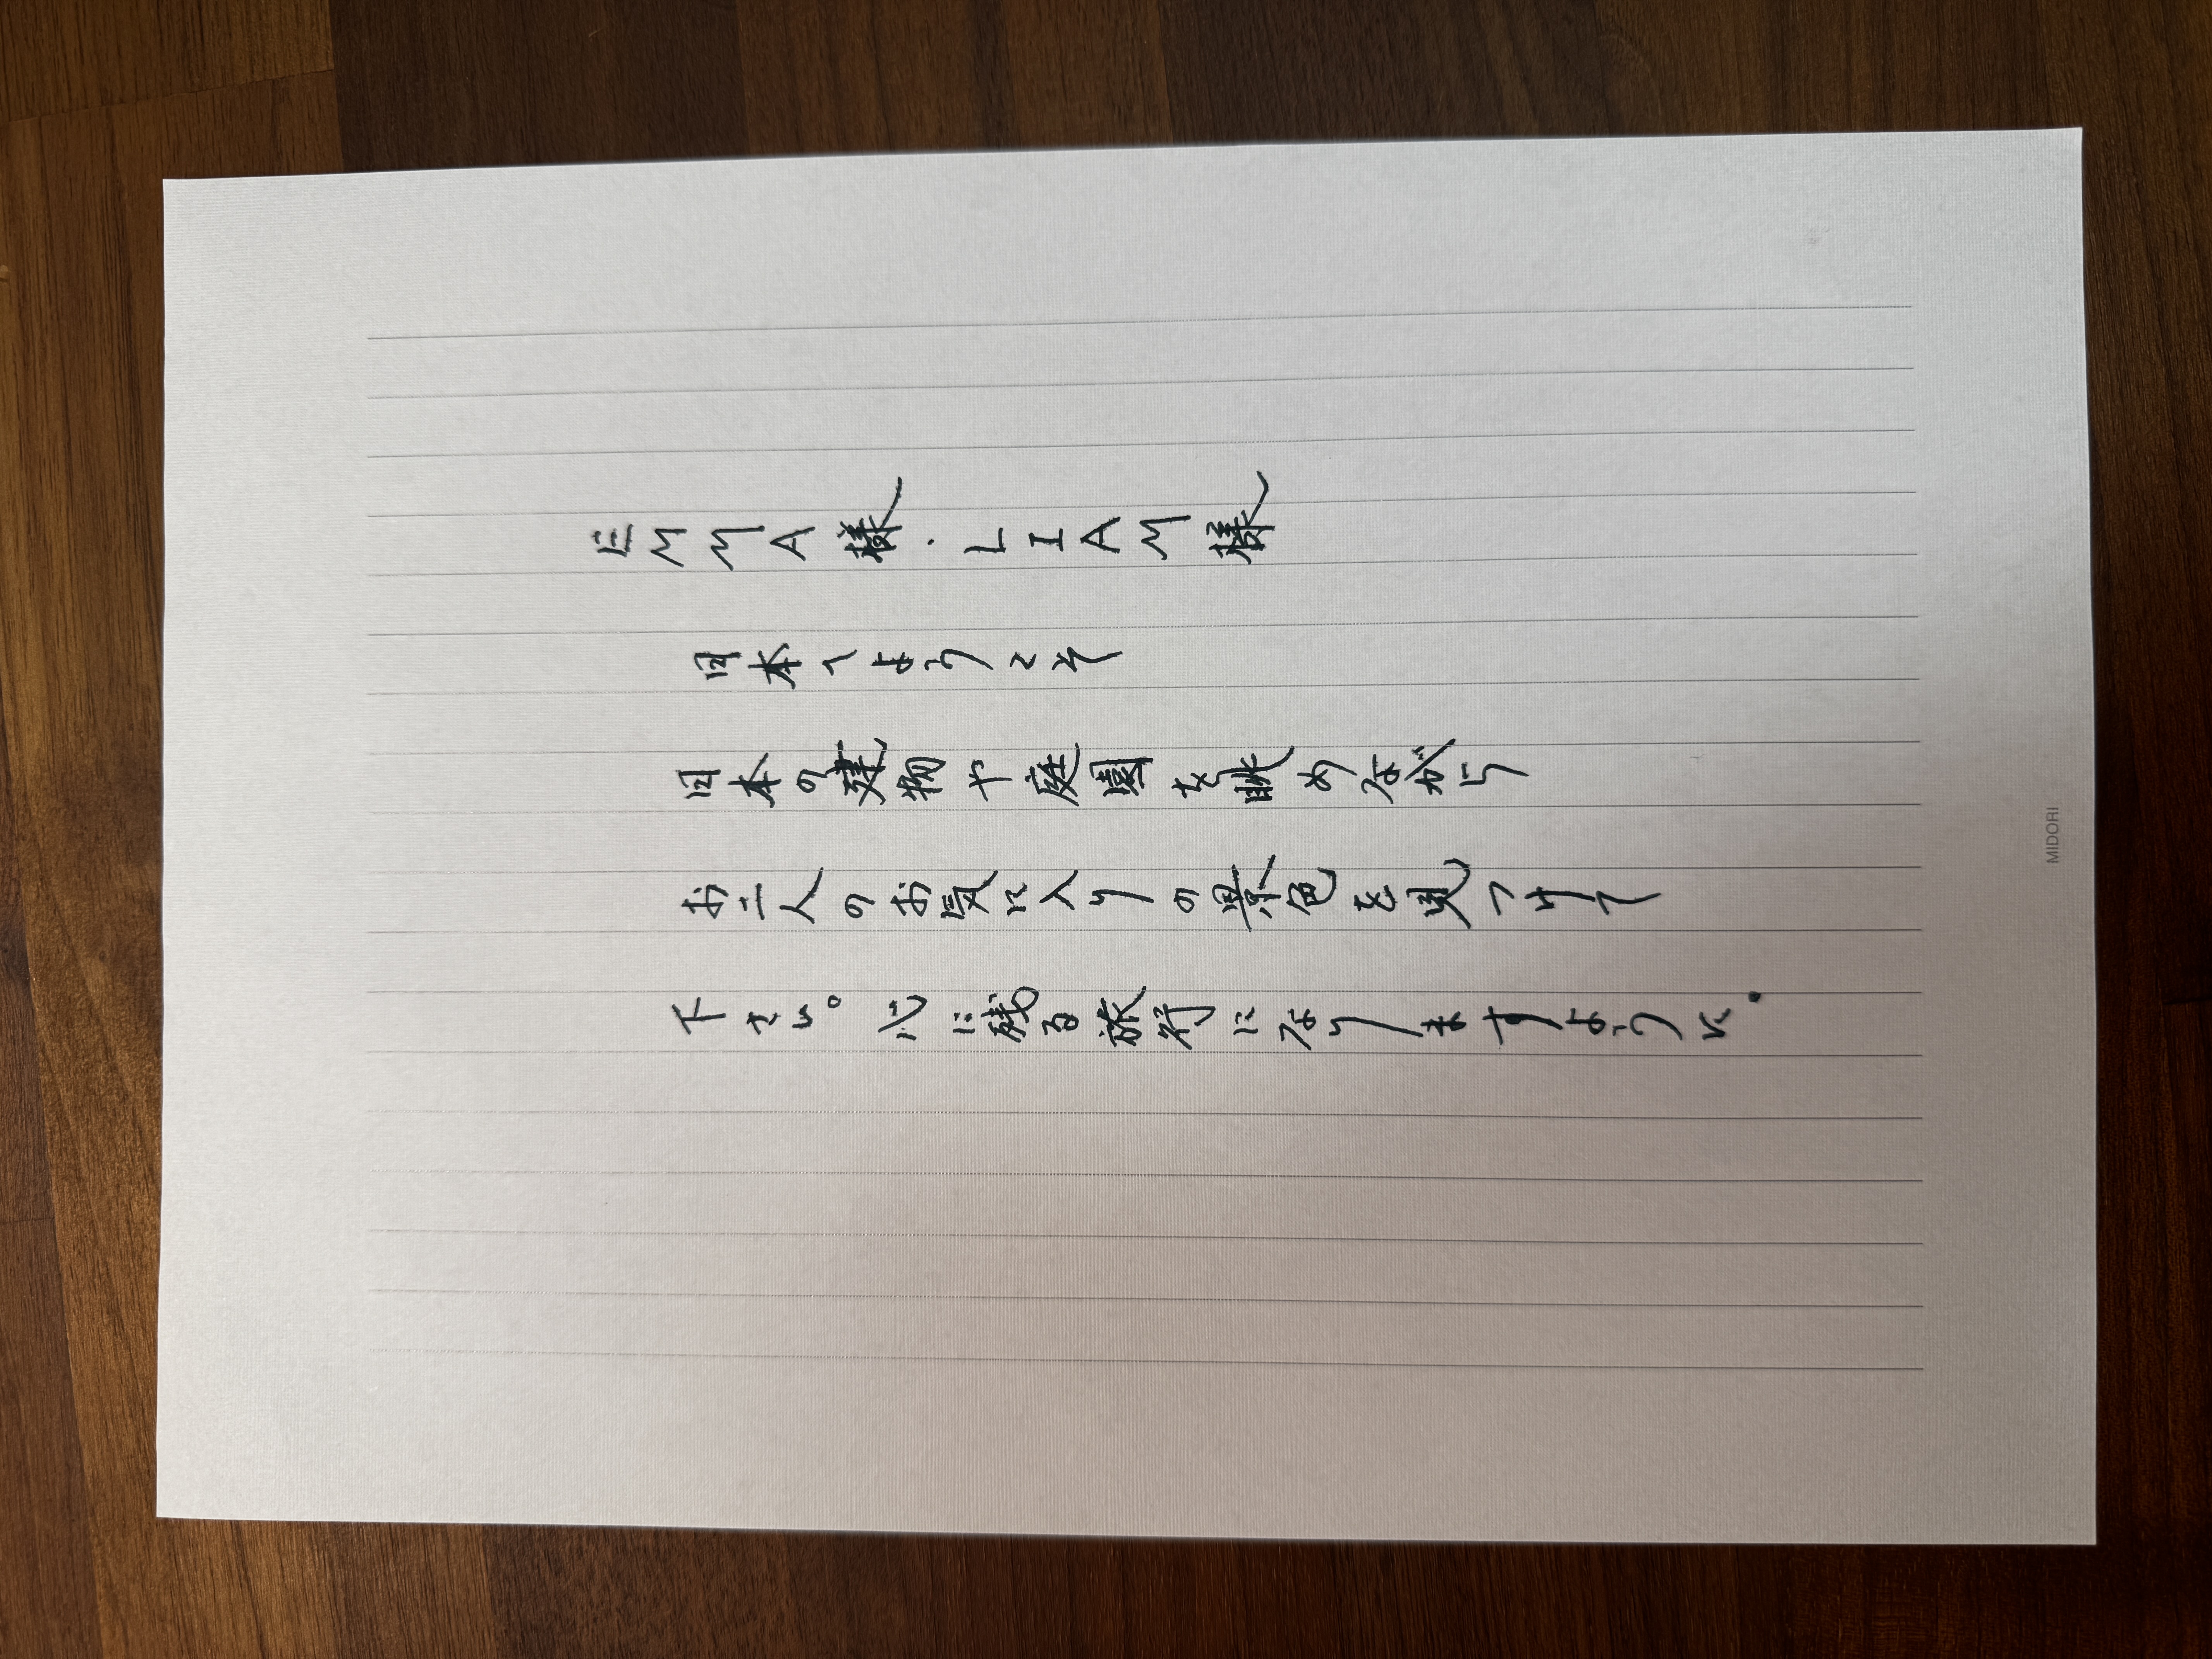 EMMA様・LIAM様
日本へようこそ
日本の建物や庭園を眺めながら
お二人のお気に入りの景色を見つけて
下さい。心に残る旅行になりますように。
MIDORI